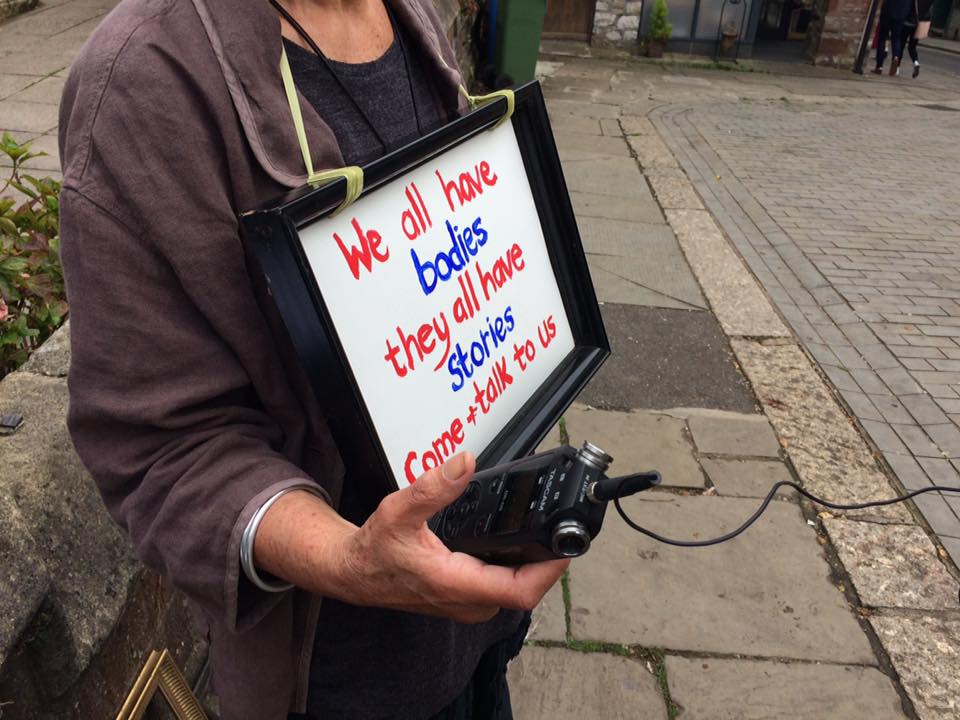 We all have
bodies
they all have
stories
Come + talk to us
TASCAM